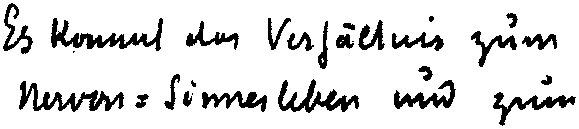 Es kommt das Verhältnis zum
Nerven=Sinnesleben und zum